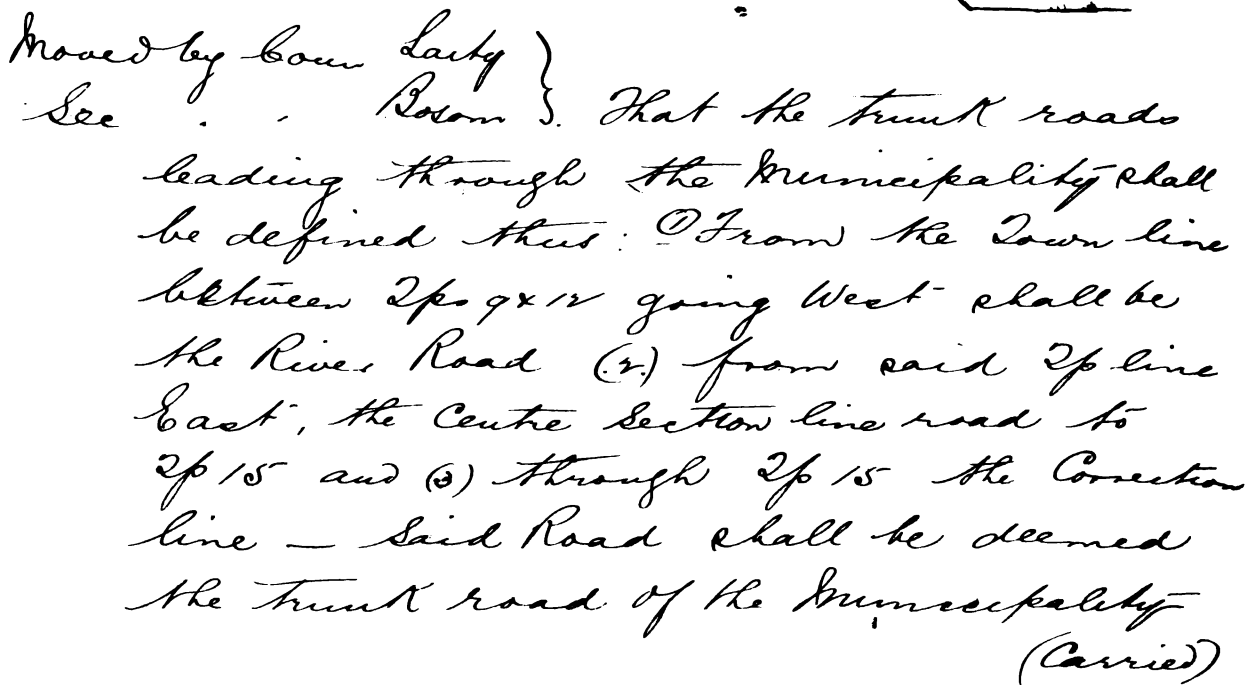 Moved by Coun Larty }
Sec . . Bosom }. That the trunk roads
leading through the Municipality shall
be defined thus: (1) From the Town line
between Tps 9 & 12 going West shall be
the River Road (2.) from said Tp line
East, the Centre Section line road to
Tp 15 and (3) through Tp 15 the Correction
line — Said Road shall be deemed
the trunk road of the Municipality
(Carried)